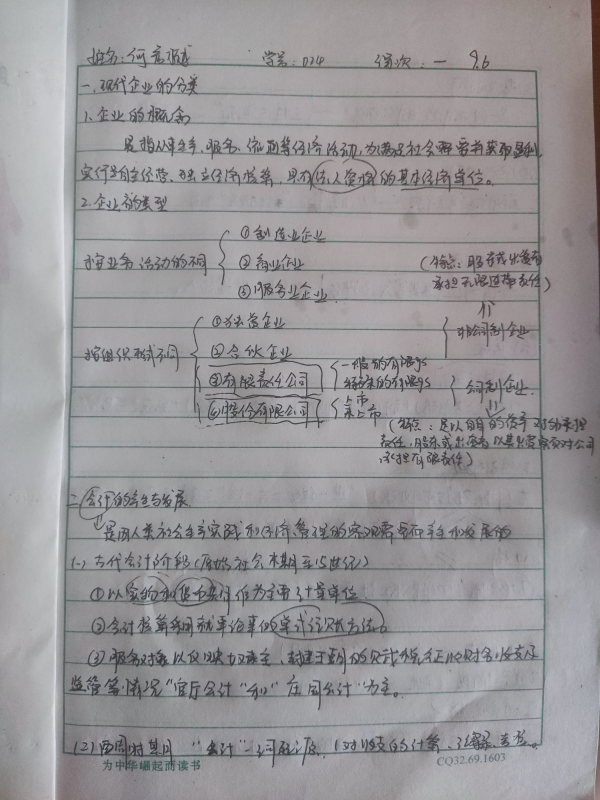 姓名：何 学号：024 课次：一 9.6
一.现代企业的分类
1.企业的概念
是指从事生产、服务、流通等经济活动，为满足社会需要并获取盈利，
实行自主经营、独立经济核算，具有法人资格的基本经济单位。
2.企业的类型
按业务活动的不同
①制造业企业
②商业企业
③服务业企业
按组织形式不同
①独资企业
②合伙企业
③有限责任公司
④股份有限公司
一般的有限
特殊的有限
上市
未上市
(特点：股东或出资者
承担无限连带责任)
非公司制企业
公司制企业
(特点：是以自身的信率对外承担
责任，股东或出资者以其出资额对公司
承担有限责任)
二.会计的产生与发展
是因人类社会生产实践和经济管理的客观需要而产生和发展的
(一)古代会计阶段(原始社会末期至15世纪)
①以实物和货币共同作为主要计量单位
②会计核算采用就事论事的单式记账方法。
③服务对象以反映
监管等情况"官厅会计"和"庄园会计"为主。
(2)西周时期 "会计"一词起源，(对 的计算、记录、
为中华崛起而读书
CQ32.69.1603